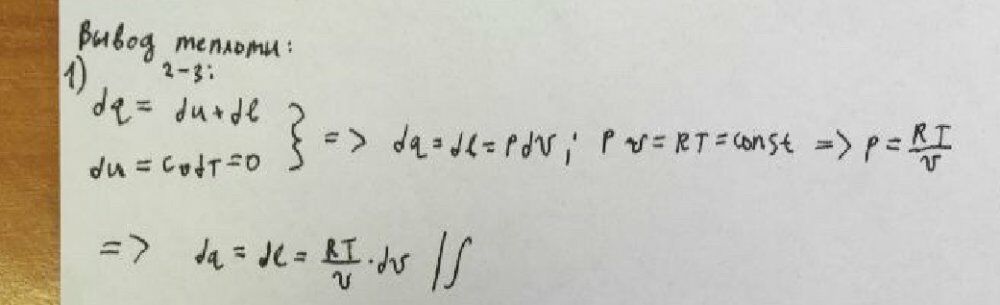 Вывод теплоты:
1) 2-3:
dq = du + dl
du = cvdT = 0 } => dq = dl = pdv; pv = RT = const => p = RT/v
=> dq = dl = RT/v · dv //∫